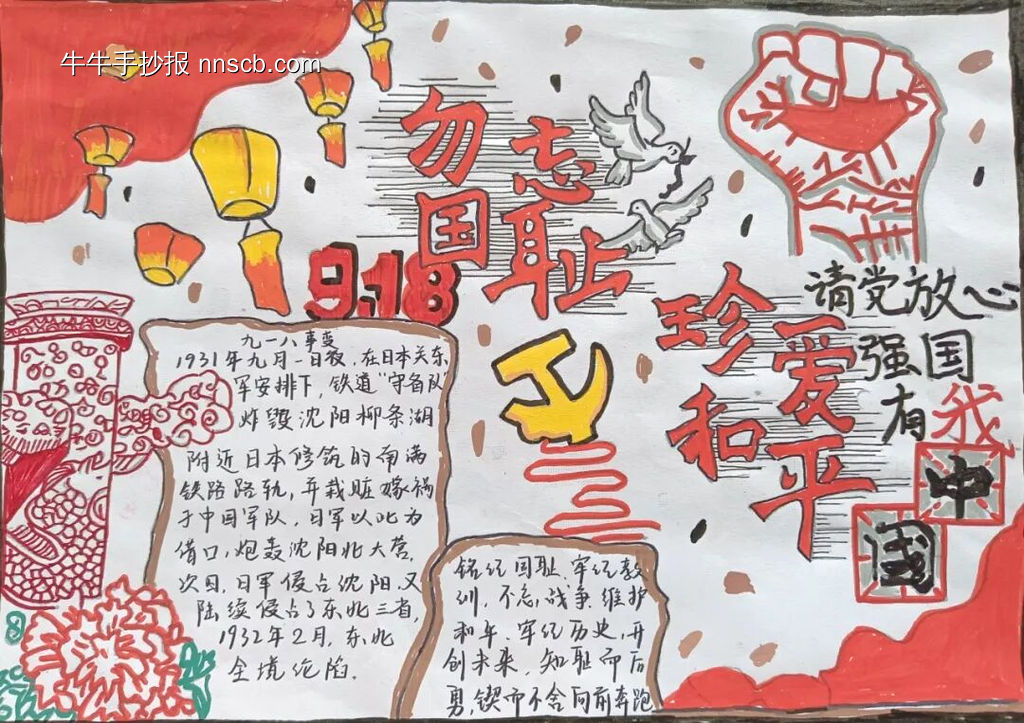 牛牛手抄报 nnscb.com
勿忘
国耻
9.18
珍爱
和平
请党放心
强国
有我
中
国
九一八事变
1931年九月一日夜，在日本关东
军安排下，铁道"守备队
炸毁沈阳柳条湖
附近日本修筑的南满
铁路路轨，并栽赃嫁祸
于中国军队，日军以此为
借口，炮轰沈阳北大营，
次日，日军侵占沈阳，又
陆续侵占了东北三省，
1932年2月，东北
全境沦陷．
铭记国耻、牢记教
训，不忘战争、维护
和平、牢记历史，开
创未来，知耻而后
勇，锲而不舍向前奔跑